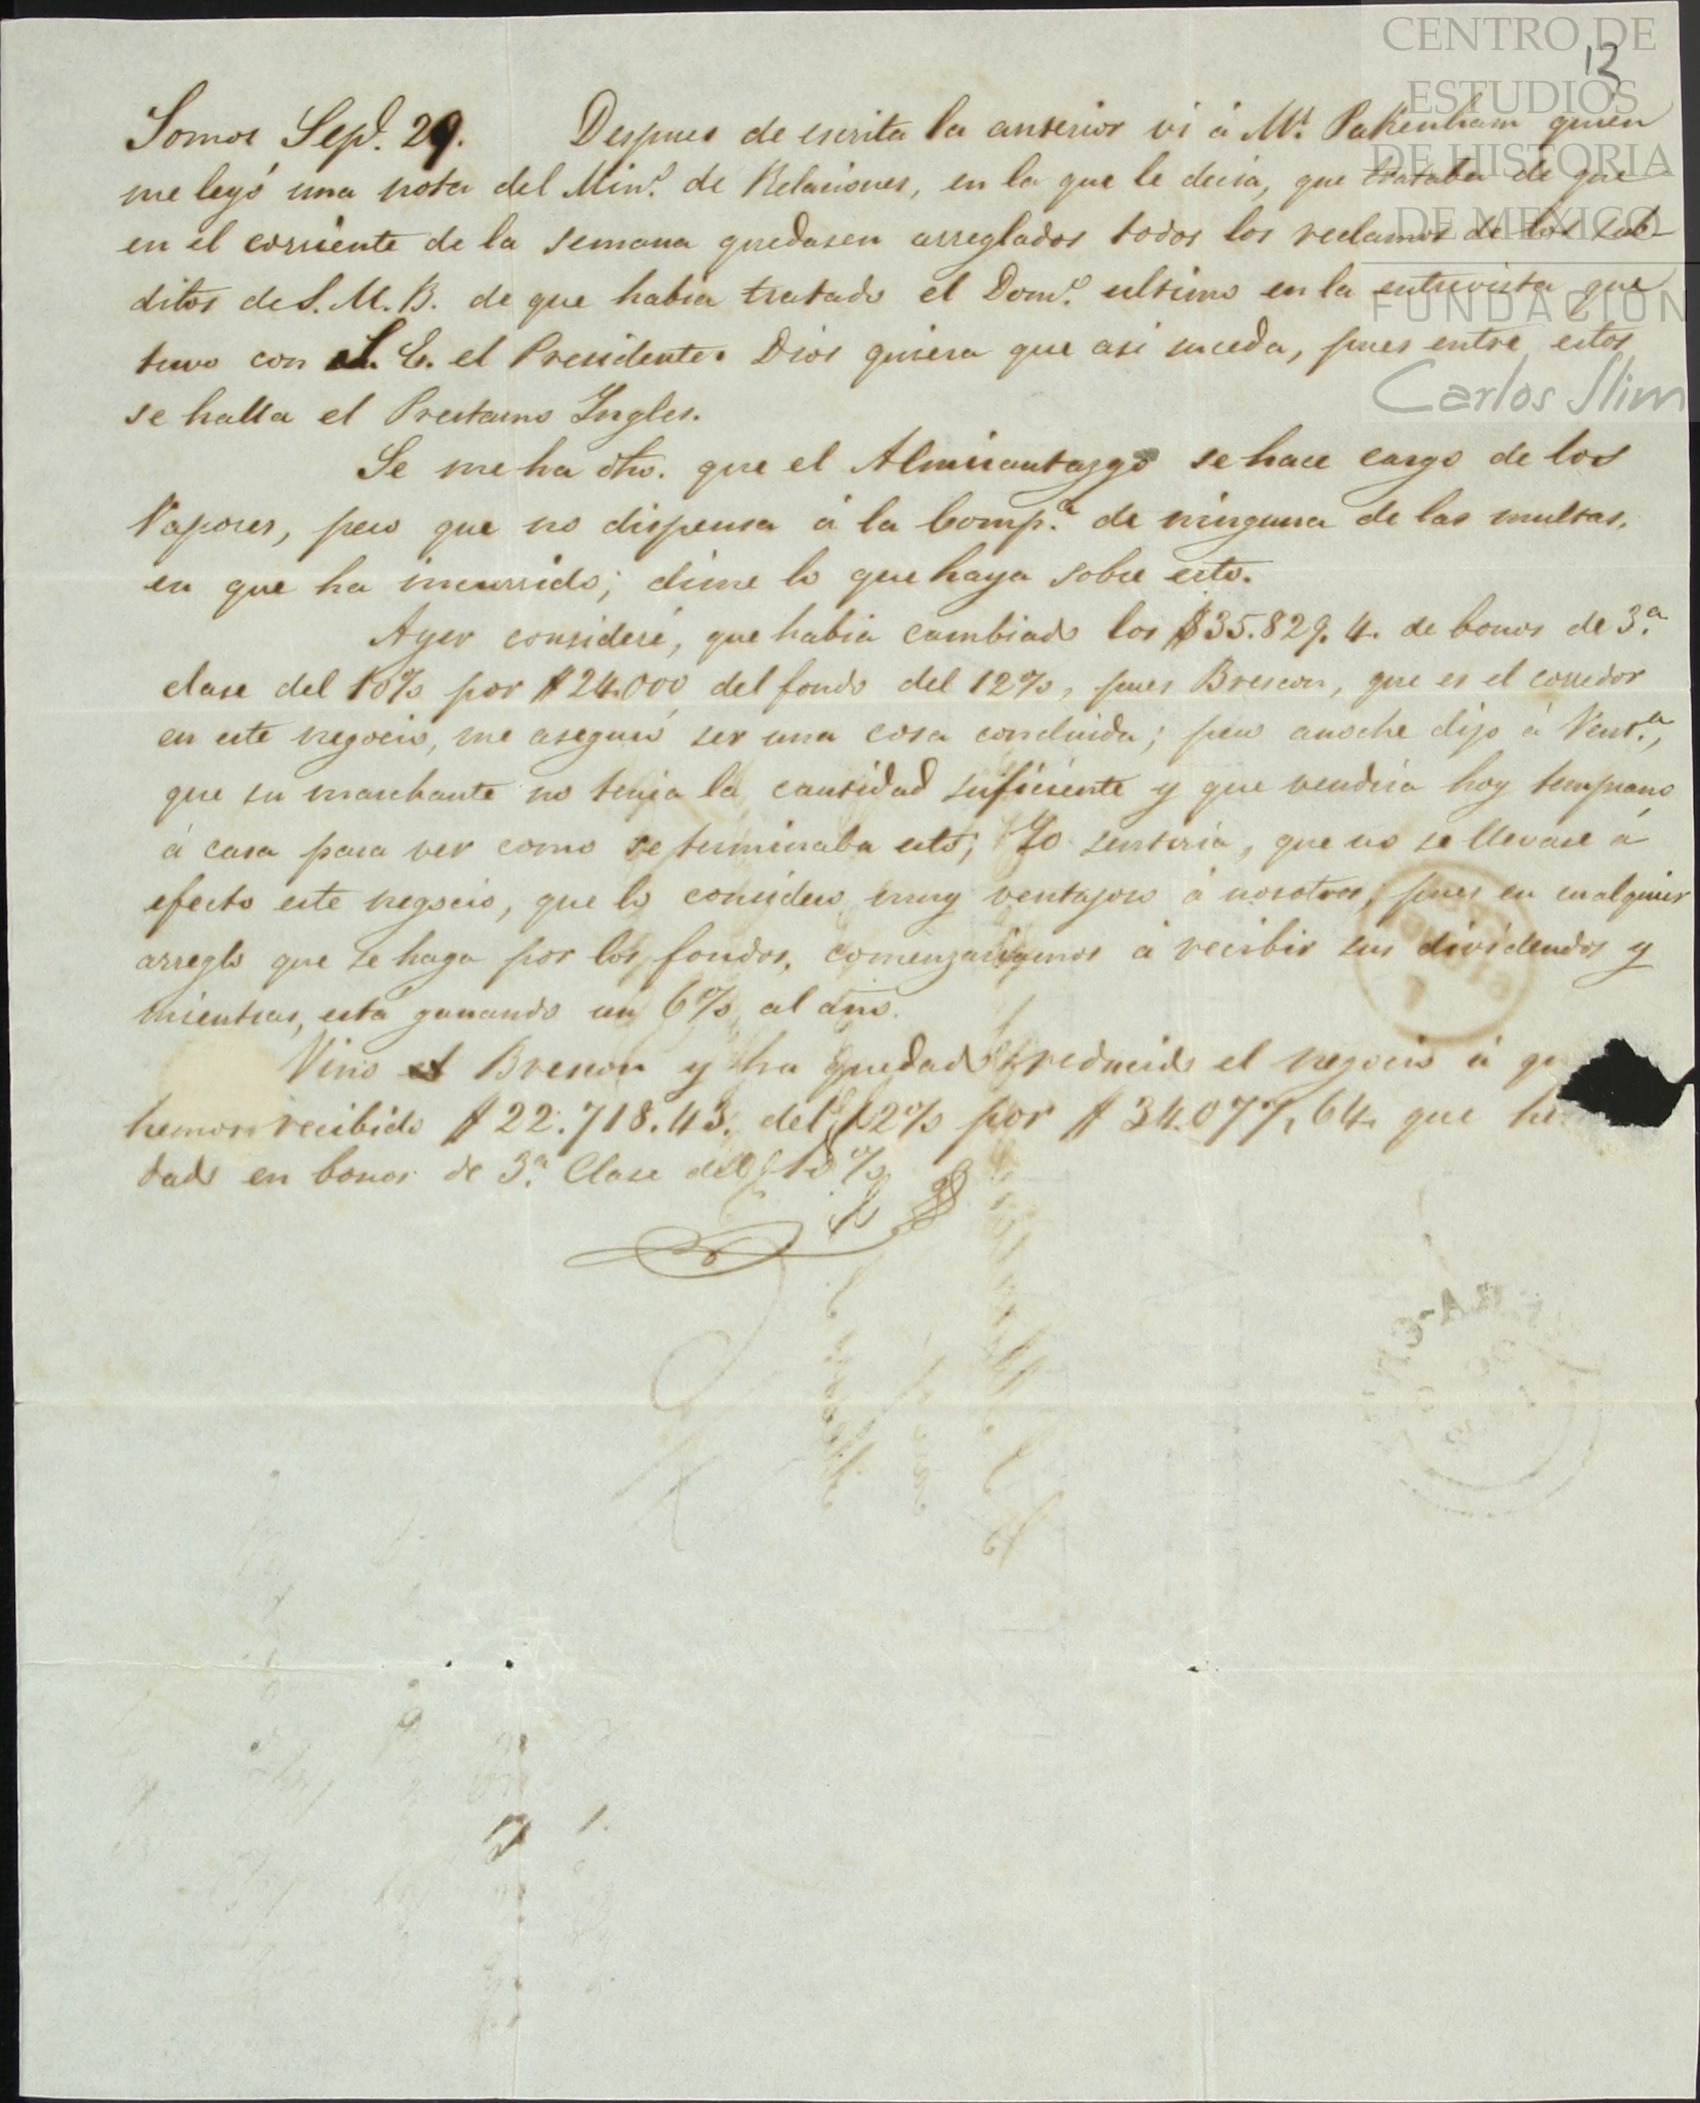 CENTRO DE
ESTUDIOS
DE HISTORIA
DE MEXICO
FUNDACION
Carlos Slim
13
Somos Sepe. 29. Despues de escrita la anterior vi á Mr. Pakenham quien
me leyó una nota del Mino. de Relaciones, en la que le decia, que trataba de que
en el corriente de la semana quedasen arreglados todos los reclamos de los sub-
ditos de S. M. B. de que habia tratado el Domo. ultimo en la entrevista que
tuvo con S. E. el Presidente. Dios quiera que asi suceda, pues entre estos
se halla el Prestamo Ingles.
Se me ha dho. que el Almirantazgo se hace cargo de los
Vapores, pero que no dispensa á la Compa. de ninguna de las multas,
en que ha incurrido; dime lo que haya sobre esto.
Ayer consideré, que habia cambiado los $35.829.4. de bonos de 3.a
clase del 10% por $24.000 del fondo del 12%, pues Brescon, que es el corredor
en este negocio, me aseguró ser una cosa concluida; pero anoche dijo á Vent.a,
que su marchante no tenia la cantidad suficiente y que vendria hoy temprano
á casa para ver como se terminaba esto; Yo sentiria, que no se llevase á
efecto este negocio, que lo considero muy ventajoso á nosotros, pues en cualquier
arreglo que se haga por los fondos, comenzariamos á recibir sus dividendos y
mientras, está ganando un 6% al año.
Vino Brescon y ha quedado reducido el negocio á q
hemos recibido $22.718.43. del 12% por $34.077,64. que he
dado en bonos de 3.a Clase del 10%